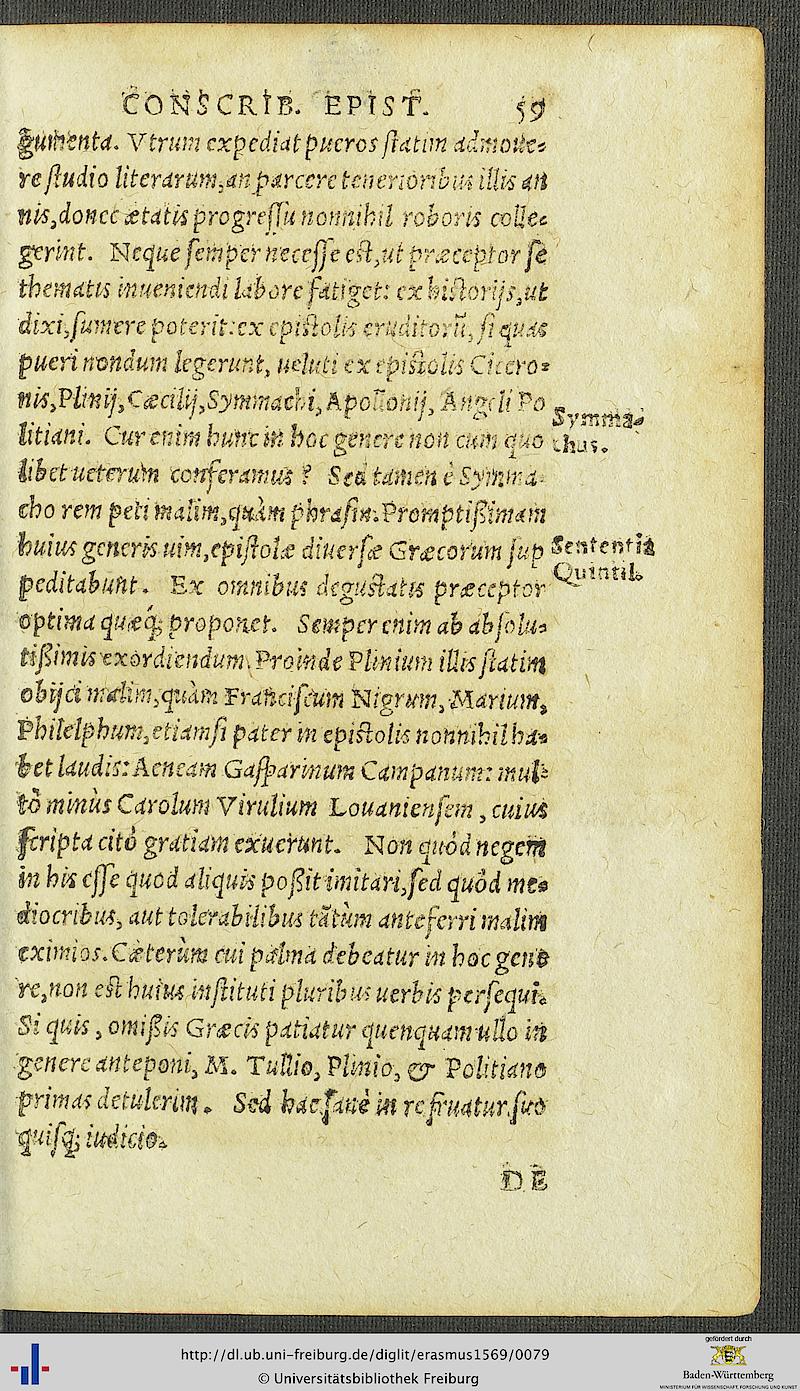 CONSCRIB. EPIST. 59
gumenta. Vtrum expediat pueros ſtatim admoue-
re ſtudio literarum, an parcere tenerioribus illis an
nis, donec ætatis progreſſu nonnihil roboris colle-
gerint. Neque ſemper neceſſe eſt, ut præceptor ſe
thematis inueniendi labore fatiget: ex hiſtorijs, ut
dixi, ſumere poterit: ex epiſtolis eruditorũ, ſi quas
pueri nondum legerunt, ueluti ex epiſtolis Cicero-
nis, Plinij, Cæcilij, Symmachi, Apollonij, Angeli Po
litiani. Cur enim hunc in hoc genere non cum quo
libet ueterum conferamus? Sed tamen è Symma-
cho rem peti malim, quàm phraſin. Promptißimam
huius generis uim, epiſtolæ diuerſæ Græcorum ſup
peditabunt. Ex omnibus deguſtatis præceptor
optima quæq; proponet. Semper enim ab abſolu-
tißimis exordiendum. Proinde Plinium illis ſtatim
obijci malim, quàm Franciſcum Nigrum, Marium,
Philelphum, etiamſi pater in epiſtolis nonnihil ha-
bet laudis: Aeneam Gaſparinum Campanum: mul-
tò minùs Carolum Virulium Louanienſem, cuius
ſcripta citò gratiam exuerunt. Non quòd negem
in his eſſe quod aliquis poßit imitari, ſed quòd me-
diocribus, aut tolerabilibus tãtùm anteferri malim
eximios. Cæterùm cui palma debeatur in hoc gene
re, non eſt huius inſtituti pluribus uerbis perſequi.
Si quis, omißis Græcis patiatur quenquam ullo in
genere anteponi, M. Tullio, Plinio, & Politiano
primas detulerim. Sed hac ſanè in re fruatur ſuo
quiſq; iudicio.
DE
Symma-
chus.
Sententia
Quintil.
http://dl.ub.uni-freiburg.de/diglit/erasmus1569/0079
© Universitätsbibliothek Freiburg
gefördert durch
Baden-Württemberg
MINISTERIUM FÜR WISSENSCHAFT, FORSCHUNG UND KUNST